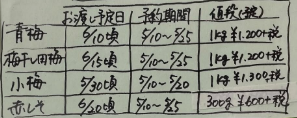 お渡し予定日 予約期間 値段(税)
青梅 6/10頃 5/10～5/25 1kg ¥1.200+税
梅干し用梅 6/15頃 5/10～5/25 1kg ¥1.200+税
小梅 5/30頃 5/10～5/20 1kg ¥1.300+税
赤しそ 6/20頃 5/10～5/25 300g ¥600+税